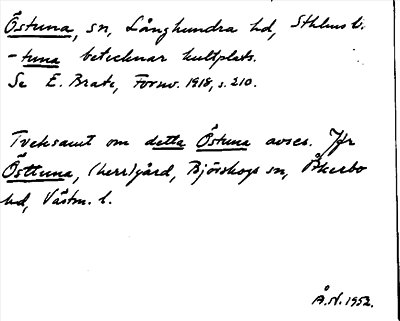 Östuna, sn, Långhundra hd, Sthlms l.
-tuna betecknar kultplats.
Se E. Brate, Fornv. 1918, s. 210.
Tveksamt om detta Östuna avses. Jfr
Östtuna, (herr)gård, Björskogs sn, Åkerbo
hd, Västm. l.
Å.N. 1952.